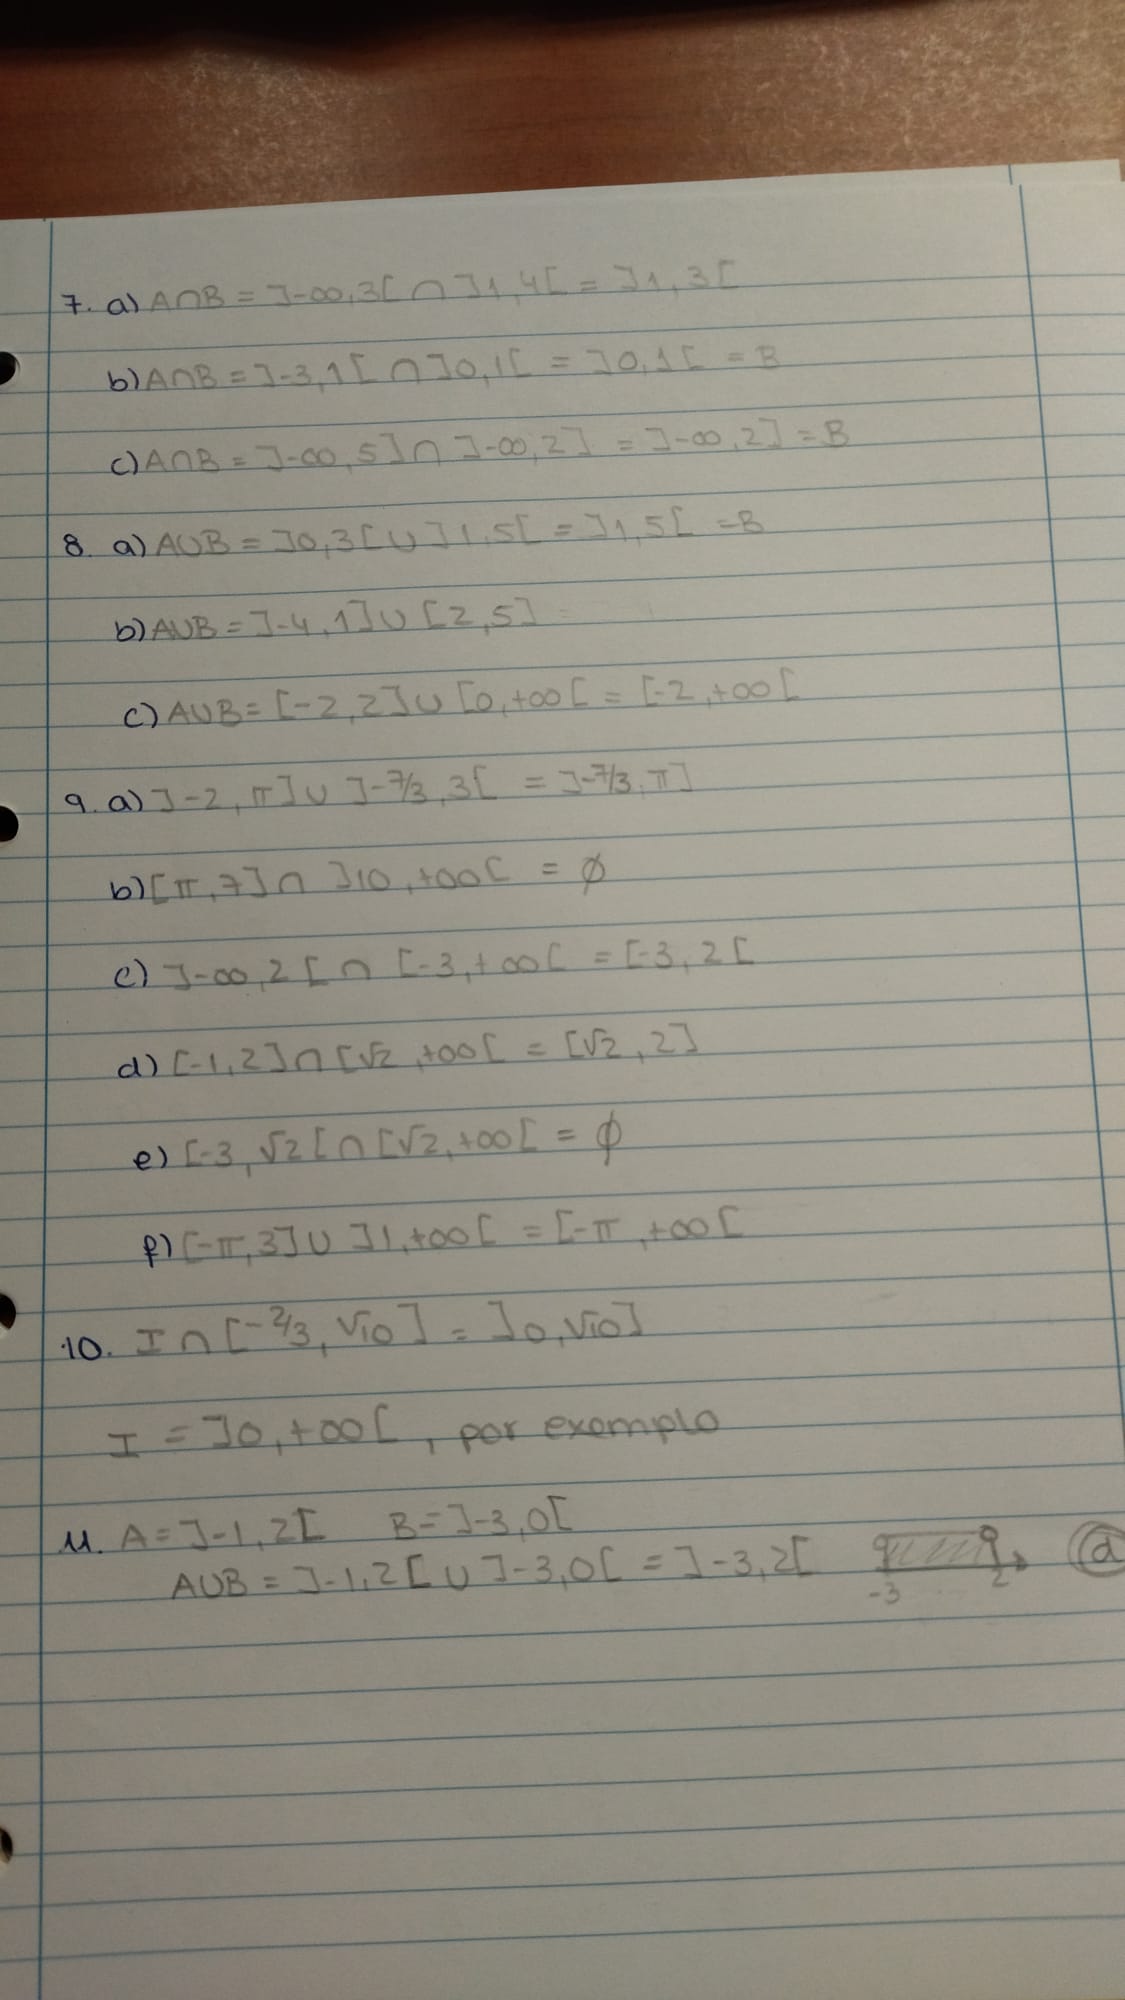 7. a) A∩B = ]-∞,3[ ∩ ]1,4[ = ]1,3[
b) A∩B = ]-3,1[ ∩ ]0,1[ = ]0,1[ = B
c) A∩B = ]-∞,5] ∩ ]-∞,2] = ]-∞,2] = B
8. a) A∪B = ]0,3[ ∪ ]1,5[ = ]1,5[ = B
b) A∪B = ]-4,1] ∪ [2,5]
c) A∪B = [-2,2] ∪ [0,+∞[ = [-2,+∞[
9. a) ]-2,π] ∪ ]-7/3,3[ = ]-7/3,π]
b) [π,7] ∩ ]10,+∞[ = ∅
c) ]-∞,2[ ∩ [-3,+∞[ = [-3,2[
d) [-1,2] ∩ [√2,+∞[ = [√2,2]
e) [-3,√2[ ∩ [√2,+∞[ = ∅
f) [-π,3] ∪ ]1,+∞[ = [-π,+∞[
10. I ∩ [-2/3,√10] = ]0,√10]
I = ]0,+∞[, por exemplo
11. A = ]-1,2[ B = ]-3,0[
A∪B = ]-1,2[ ∪ ]-3,0[ = ]-3,2[ -3 2 d